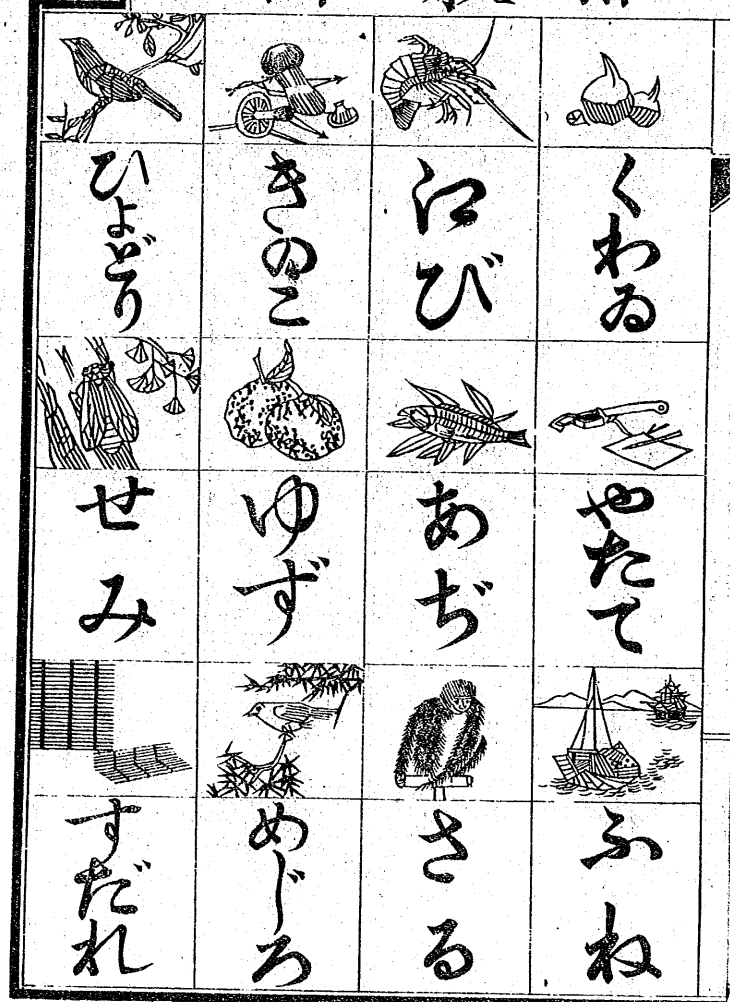 くわゐ
やたて
ふね
江び
あぢ
さる
きのこ
ゆず
めじろ
ひよどり
せみ
すだれ